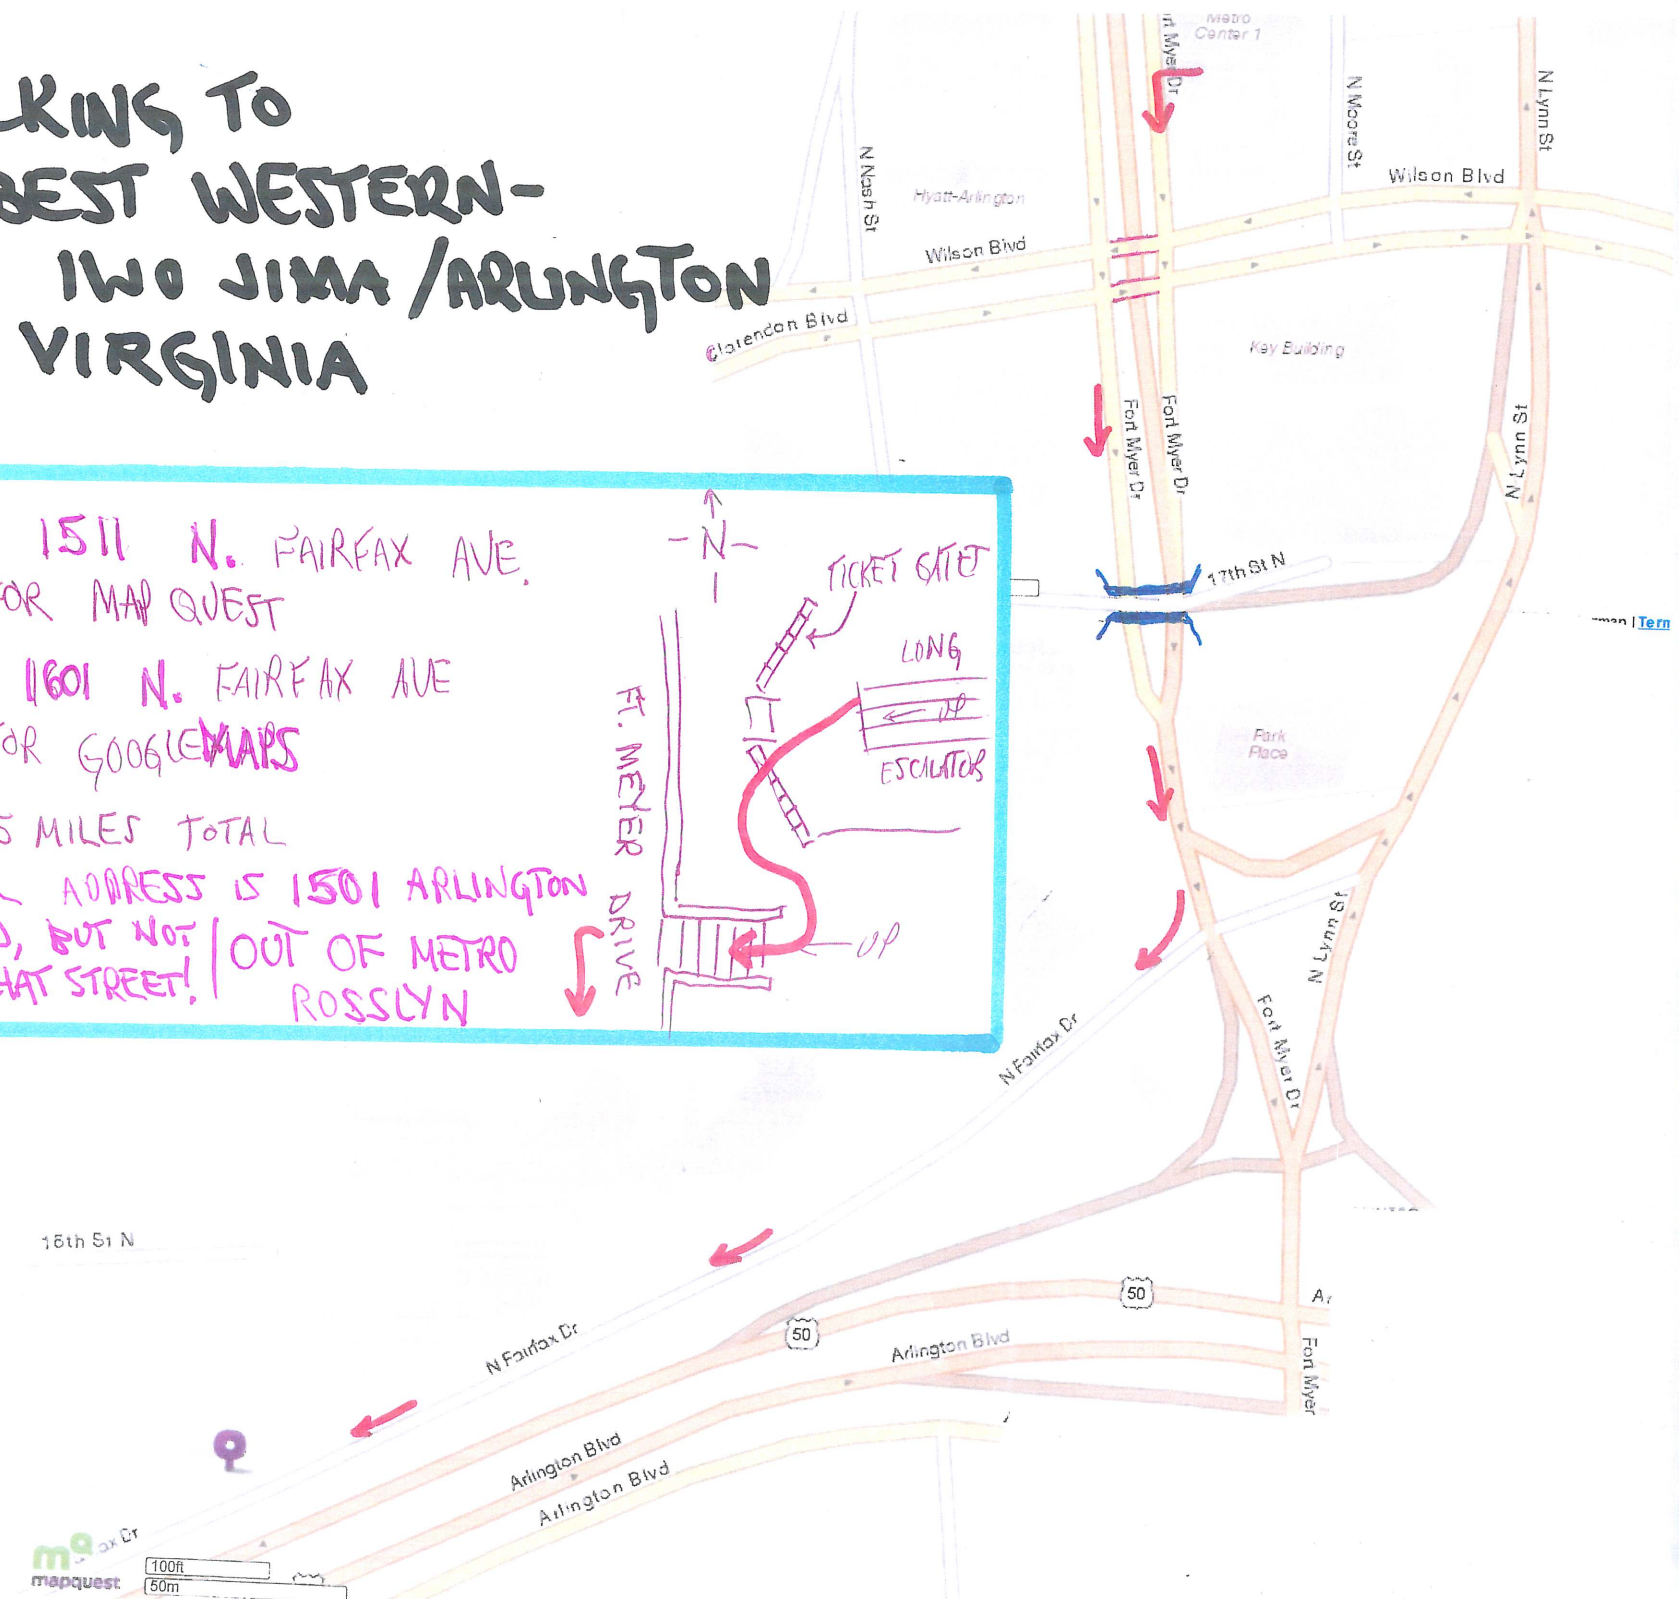 LKING TO
BEST WESTERN-
IWO JIMA/ARLINGTON
VIRGINIA
1511 N. FAIRFAX AVE.
FOR MAP QUEST
1601 N. FAIRFAX AVE
FOR GOOGLE MAPS
5 MILES TOTAL
L ADDRESS IS 1501 ARLINGTON
D, BUT NOT
HAT STREET!
OUT OF METRO
ROSSLYN
-N-
TICKET GATES
LONG
UP
ESCALATOR
UP
FT. MEYER DRIVE
Metro
Center 1
rt Myer Dr
N Moore St
N Lynn St
N Nash St
Hyatt-Arlington
Wilson Blvd
Wilson Blvd
Clarendon Blvd
Key Building
Fort Myer Dr
Fort Myer Dr
N Lynn St
17th St N
man | Term
Park
Place
N Lynn St
Fort Myer Dr
N Fairfax Dr
16th St N
50
50
Ar
N Fairfax Dr
Arlington Blvd
Fort Myer
Arlington Blvd
Arlington Blvd
ax Dr
mq
mapquest
100ft
50m